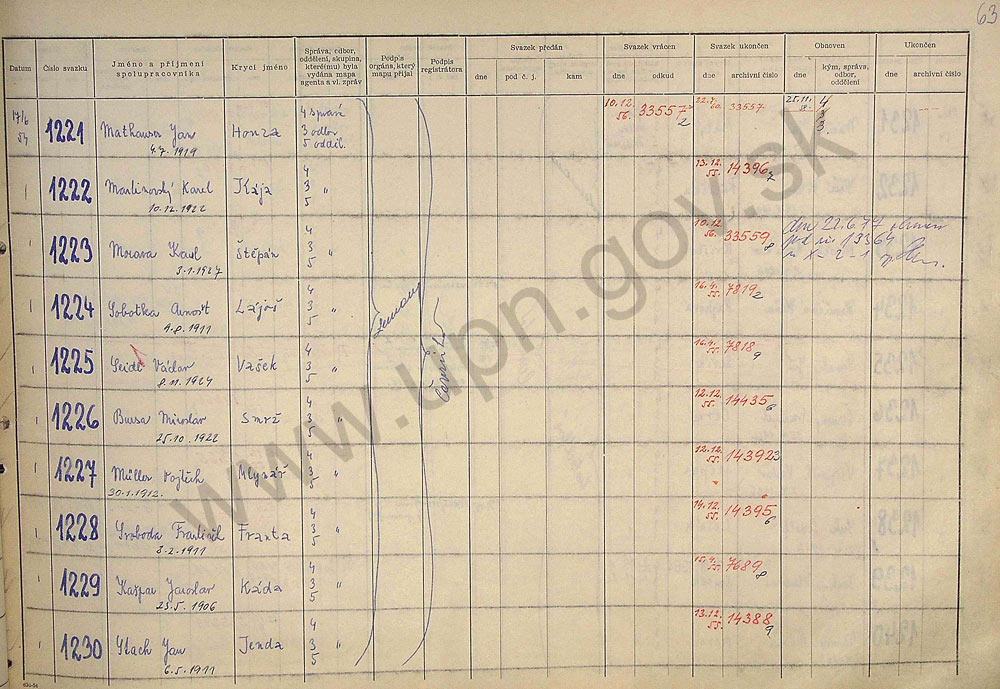 63
Datum
Číslo svazku
Jméno a příjmení
spolupracovníka
Krycí jméno
Správa, odbor,
oddělení, skupina,
které(mu) byla
vydána mapa
agenta a vl. zpráv
Podpis
orgána, který
mapu přijal
Podpis
registrátora
Svazek předán
dne
pod č. j.
kam
Svazek vrácen
dne
odkud
Svazek ukončen
dne
archivní číslo
Obnoven
dne
kým, správa,
odbor,
oddělení
Ukončen
dne
archivní číslo
17/6
54
1221
Mathauser Jan
4.7.1919
Honza
4 správa
3 odbor
5 odděl.
10.12.
56.
33557
2
33557
25.11.
4
3
3.
1222
Martinovský Karel
10.12.1922
Kája
4
3 "
5
13.12.
55.
14396
2
1223
Morava Karel
3.1.1927
Štěpán
4
3 "
5
10.12.
56.
33559
8
dne 22.6.77
pod
1224
Sobotka Arnošt
4.8.1911
Lajoš
4
3 "
5
16.4.
55.
7819
2
1225
Seidl Václav
8.11.1924
Vašek
4
3 "
5
16.4.
55.
7818
9
1226
Bursa Miroslav
25.10.1922
Smrž
4
3 "
5
12.12.
55.
14435
6
1227
Müller Vojtěch
30.1.1912.
Mlynář
4
3 "
5
12.12.
55.
14392
3
1228
Svoboda František
3.2.1911
Franta
4
3 "
5
14.12.
55.
14395
6
1229
Kašpar Jaroslav
23.5.1906
Káďa
4
3 "
5
15.4.
55.
7689
8
1230
Stach Jan
6.5.1911
Jenda
4
3 "
5
13.12.
55.
14388
9
www.upn.gov.sk